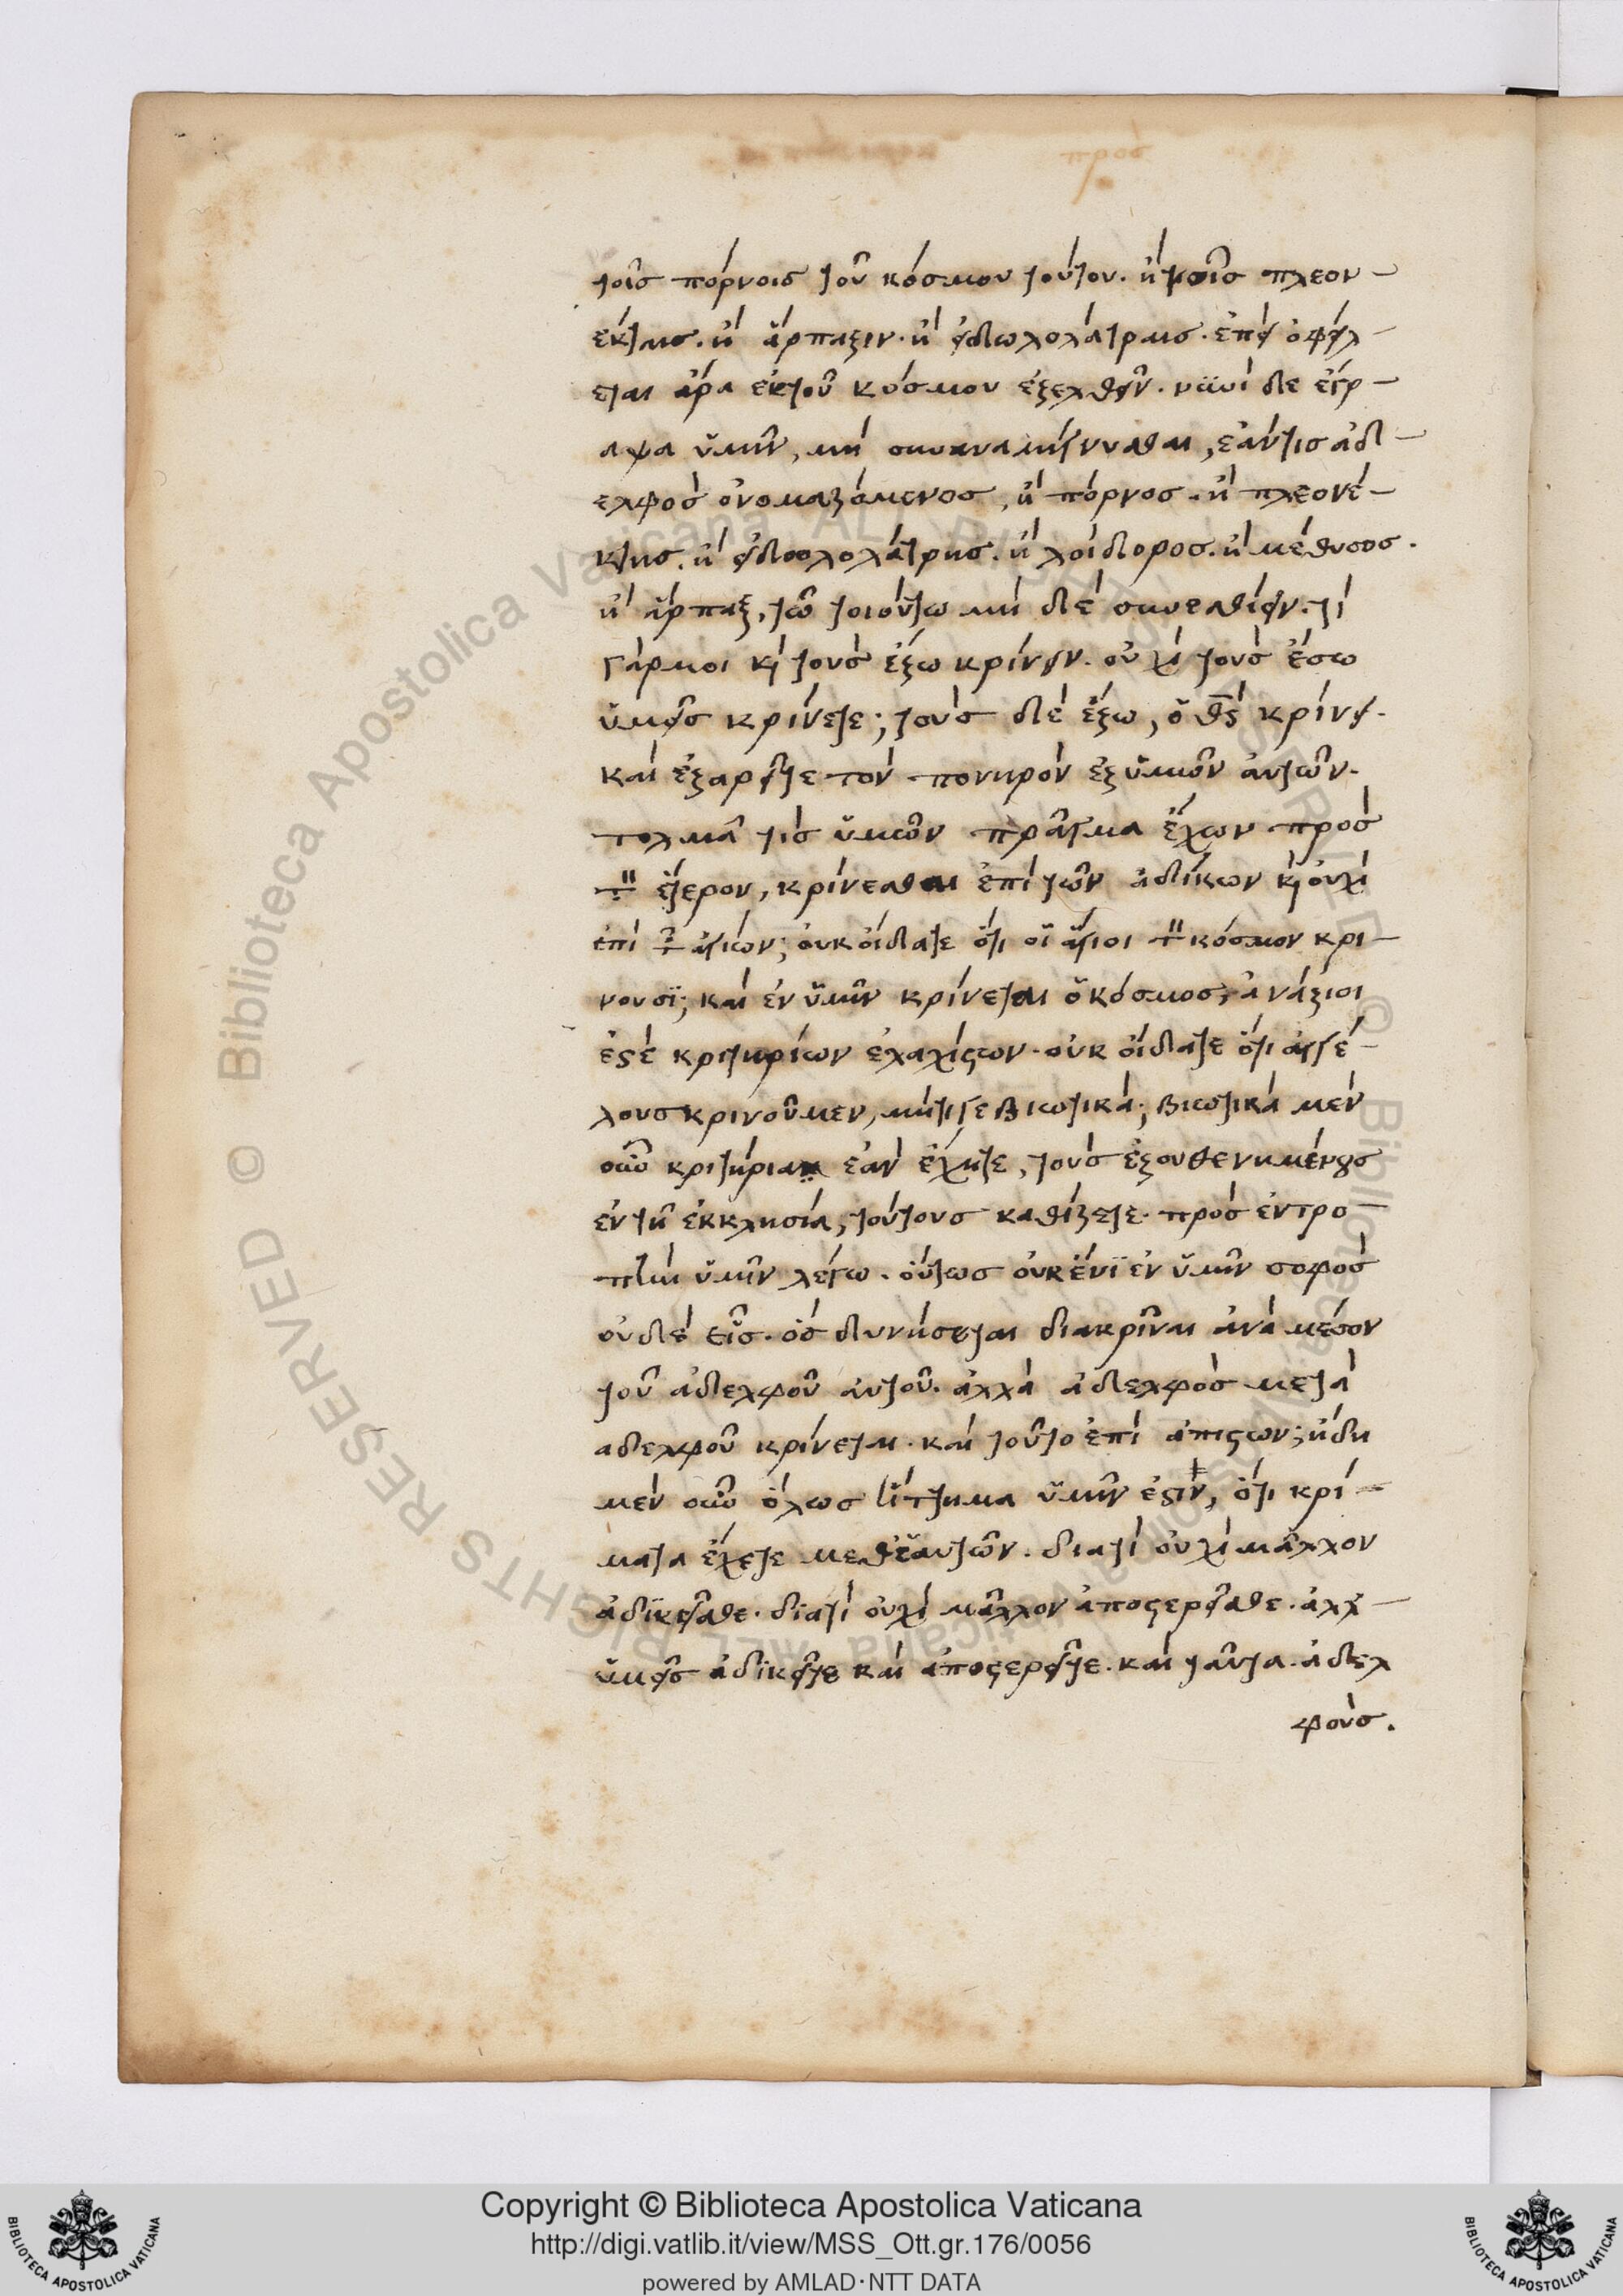 προσ
τοῖσ πόρνοισ τοῦ κόσμου τούτου. ἢ τοῖσ πλεον-
έκταισ. ἢ ἅρπαξιν. ἢ εἰδωλολάτραισ. ἐπεὶ ὀφείλ-
εται ἄρα ἐκ τοῦ κόσμου ἐξελθεῖν. νϋνὶ δε ἔγρ-
αψα ὑμῖν, μὴ συναναμίγνυσθαι, ἐάν τισ ἀδ-
ελφὸσ ὀνομαζόμενοσ, ἢ πόρνοσ. ἢ πλεονέ-
κτησ. ἢ εἰδωλολάτρησ. ἢ λοίδοροσ. ἢ μέθυσοσ.
ἢ ἅρπαξ, τῶ τοιούτω μὴ δὲ συνεσθίειν. τί
γάρ μοι κὶ τοὺσ ἔξω κρίνειν. οὐχὶ τοὺσ ἔσω
ὑμεῖσ κρίνετε; τοὺσ δὲ ἔξω, ὁ θς κρίνει.
καὶ ἐξαρεῖτε τὸν πονηρὸν ἐξ ὑμῶν ἀυτῶν.
τολμᾶ τὶσ ὑμῶν πρᾶγμα ἔχων πρὸσ
τὸν ἕτερον, κρίνεσθαι ἐπὶ τῶν ἀδίκων κὶ οὐχὶ
ἐπὶ τῶν ἁγίων; ὀυκ ὄιδατε ὅτι οἱ ἅγιοι τὸν κόσμον κρι-
νουσϊ; καὶ ἐν ὑμῖν κρίνεται ὁ κόσμοσ, ἀνάξιοι
ἐϛὲ κριτηρίων ἐλαχίϛων. οὐκ ὄιδατε ὅτι ἀγγέ-
λουσ κρινοῦμεν, μήτιγε βιωτικά; βιωτικὰ μὲν
οὖν κριτήρια ἐὰν ἔχητε, τοὺσ ἐξουθενημένουσ
ἐν τῆ ἐκκλησία, τούτουσ καθίζετε. πρὸσ ἐντρο-
πὴν ὑμῖν λέγω. ὅυτωσ ὀυκ ἔνϊ ἐν ὑμῖν σοφὸσ
οὐδὲ εἷσ. ὃσ δυνήσεται διακρῖναι ἀνὰ μέσον
τοῦ ἀδελφοῦ ἀυτοῦ. ἀλλὰ ἀδελφὸσ μετὰ
αδελφοῦ κρίνεται. καὶ τοῦτο ἐπὶ ἀπίϛων; ἤδη
μὲν οὖν ὅλωσ ἥττημα ὑμῖν ἐϛὶν, ὅτι κρί-
ματα ἔχετε μεθ ἑαυτῶν. διατί οὐχὶ μᾶλλον
ἀδϊκεῖσθε. δϊατί οὐχὶ μᾶλλον ἀποϛερεῖσθε. ἀλλ-
ὑμεῖσ ἀδϊκεῖτε καὶ ἀποϛερεῖτε. καὶ ταῦτα. ἀδελ
φούσ.
Copyright © Biblioteca Apostolica Vaticana
http://digi.vatlib.it/view/MSS_Ott.gr.176/0056
powered by AMLAD·NTT DATA
BIBLIOTECA APOSTOLICA VATICANA
BIBLIOTECA APOSTOLICA VATICANA
© Biblioteca Apostolica Vaticana ALL RIGHTS RESERVED
© Biblioteca Apostolica Vaticana ALL RIGHTS RESERVED